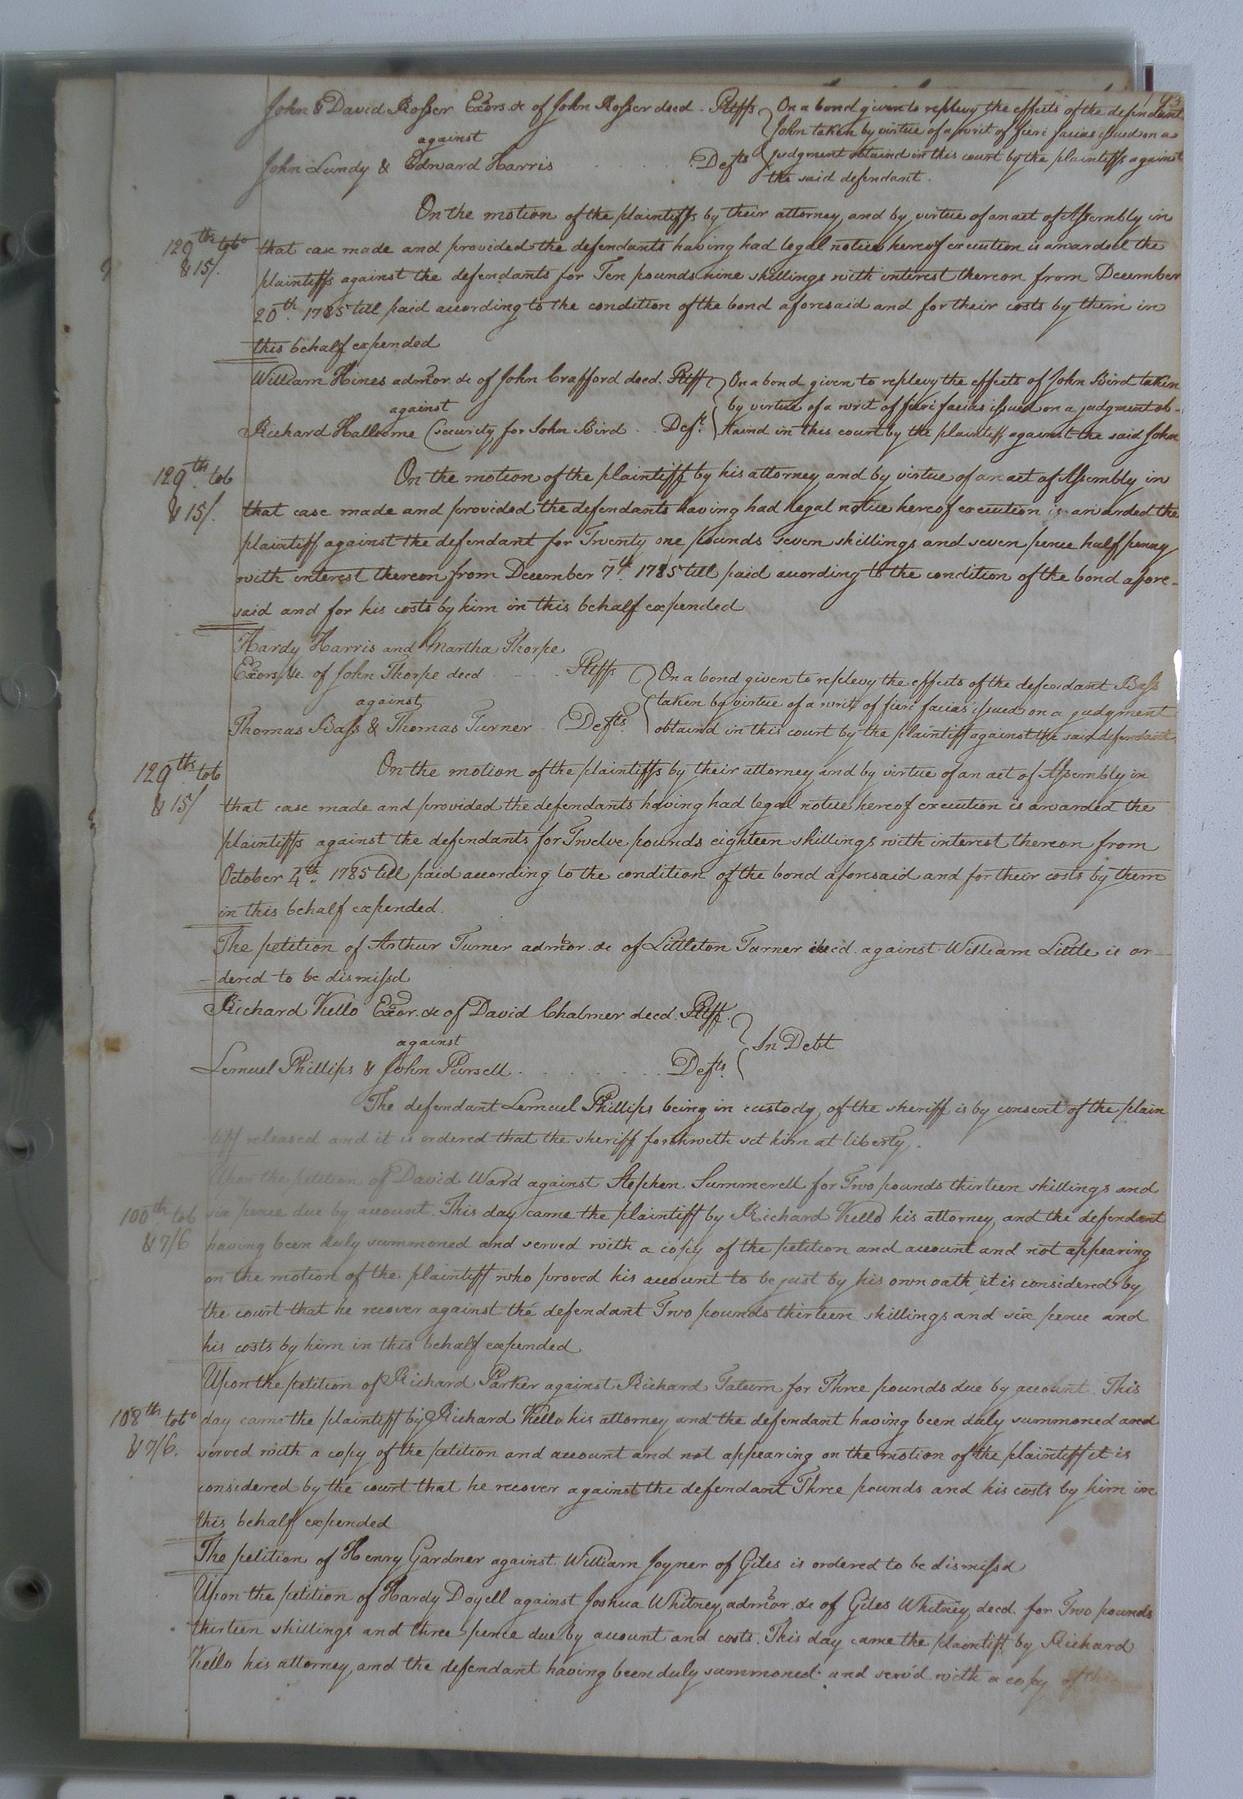 John & David Rosser Exors. &c of John Rosser decd. Pltffs
against
John Lundy & Edward Harris Defts
On a bond given to replevy the effects of the defendant
John taken by virtue of a writ of fieri facias issued on a
judgment obtaind in this court by the plaintiffs against
the said defendant.
On the motion of the plaintiffs by their attorney, and by virtue of an act of Assembly in
129th tobo that case made and provided the defendants having had legal notice hereof execution is awarded the
& 15/. plaintiffs against the defendants for Ten pounds nine shillings with interest thereon from December
20th. 1785 till paid according to the condition of the bond aforesaid and for their costs by them in
this behalf expended
William Hines admor. &c of John Crafford decd. Pltff
against
Richard Hallcome (security for John Bird Deft.
On a bond given to replevy the effects of John Bird taken
by virtue of a writ of fieri facias issued on a judgment ob-
taind in this court by the plaintiff against the said John
129th tob On the motion of the plaintiff by his attorney and by virtue of an act of Assembly in
& 15/. that case made and provided the defendants having had legal notice hereof execution is awarded the
plaintiff against the defendant for Twenty one pounds seven shillings and seven pence half penny
with interest thereon from December 7th. 1785 till paid according to the condition of the bond afore-
said and for his costs by him in this behalf expended
Hardy Harris and Martha Thorpe
Exors. &c. of John Thorpe decd Pltffs
against
Thomas Bass & Thomas Turner Defts.
On a bond given to replevy the effects of the defendant Bass
taken by virtue of a writ of fieri facias issued on a judgment
obtaind in this court by the plaintiff against the said defendant
129th tob On the motion of the plaintiffs by their attorney and by virtue of an act of Assembly in
& 15/ that case made and provided the defendants having had legal notice hereof execution is awarded the
plaintiffs against the defendants for Twelve pounds eighteen shillings with interest thereon from
October 4th. 1785 till paid according to the condition of the bond aforesaid and for their costs by them
in this behalf expended.
The petition of Arthur Turner admor. &c of Littleton Turner decd. against William Little is or-
dered to be dismissd
Richard Kello Exor. &c of David Chalmer decd. Pltff.
against
Lemuel Phillips & John Pursell Defts.
In Debt
The defendant Lemuel Phillips being in custody of the sheriff is by consent of the plain
tiff released and it is ordered that the sheriff forthwith set him at liberty.
Upon the petition of David Ward against Stephen Summerell for Two pounds thirteen shillings and
100th tob six pence due by account. This day came the plaintiff by Richard Kello his attorney, and the defendant
& 7/6 having been duly summoned and served with a copy of the petition and account and not appearing
on the motion of the plaintiff who proved his account to be just by his own oath it is considered by
the court that he recover against the defendant Two pounds thirteen shillings and six pence and
his costs by him in this behalf expended
Upon the petition of Richard Parker against Richard Tatum for Three pounds due by account. This
108th tobo day came the plaintiff by Richard Kello his attorney and the defendant having been duly summoned and
& 7/6. served with a copy of the petition and account and not appearing on the motion of the plaintiff it is
considered by the court that he recover against the defendant Three pounds and his costs by him in
this behalf expended
The petition of Henry Gardner against William Joyner of Giles is ordered to be dismissd
Upon the petition of Hardy Doyell against Joshua Whitney admor. &c of Giles Whitney decd. for Two pounds
thirteen shillings and three pence due by account and costs. This day came the plaintiff by Richard
Kello his attorney, and the defendant having been duly summoned and servd with a copy of the